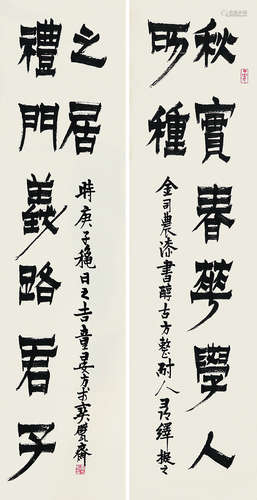 秋實春華學人
所種
金司農漆書醇古方整耐人尋繹擬之
禮門義路君子
之居
時庚子穐日之吉童晏方于寅甓齋